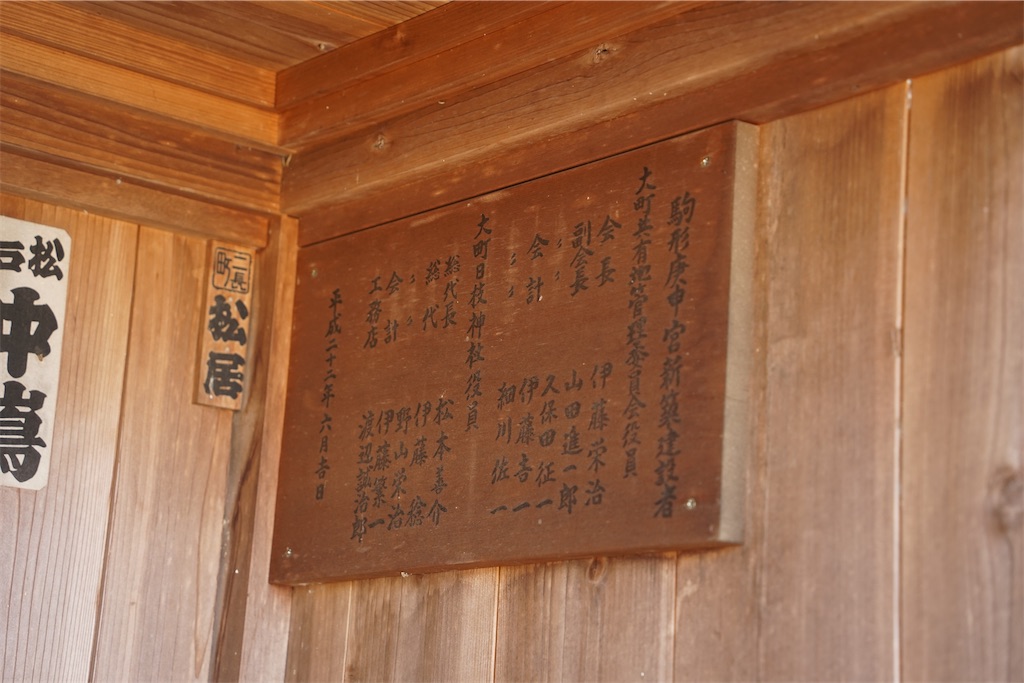 駒形庚申宮新築建設者
大町共有地管理委員会役員
会長 伊藤栄治
副会長 山田進一郎
〃 久保田征一
会計 伊藤吾一
〃 細川佐一
大町日枝神社役員
総代長 松本善介
総代 伊藤稔
〃 野山栄治
会計 伊藤築一
工務店 渡辺誠治郎
平成二十二年六月吉日
二長町
松居
松戸
沖嶌